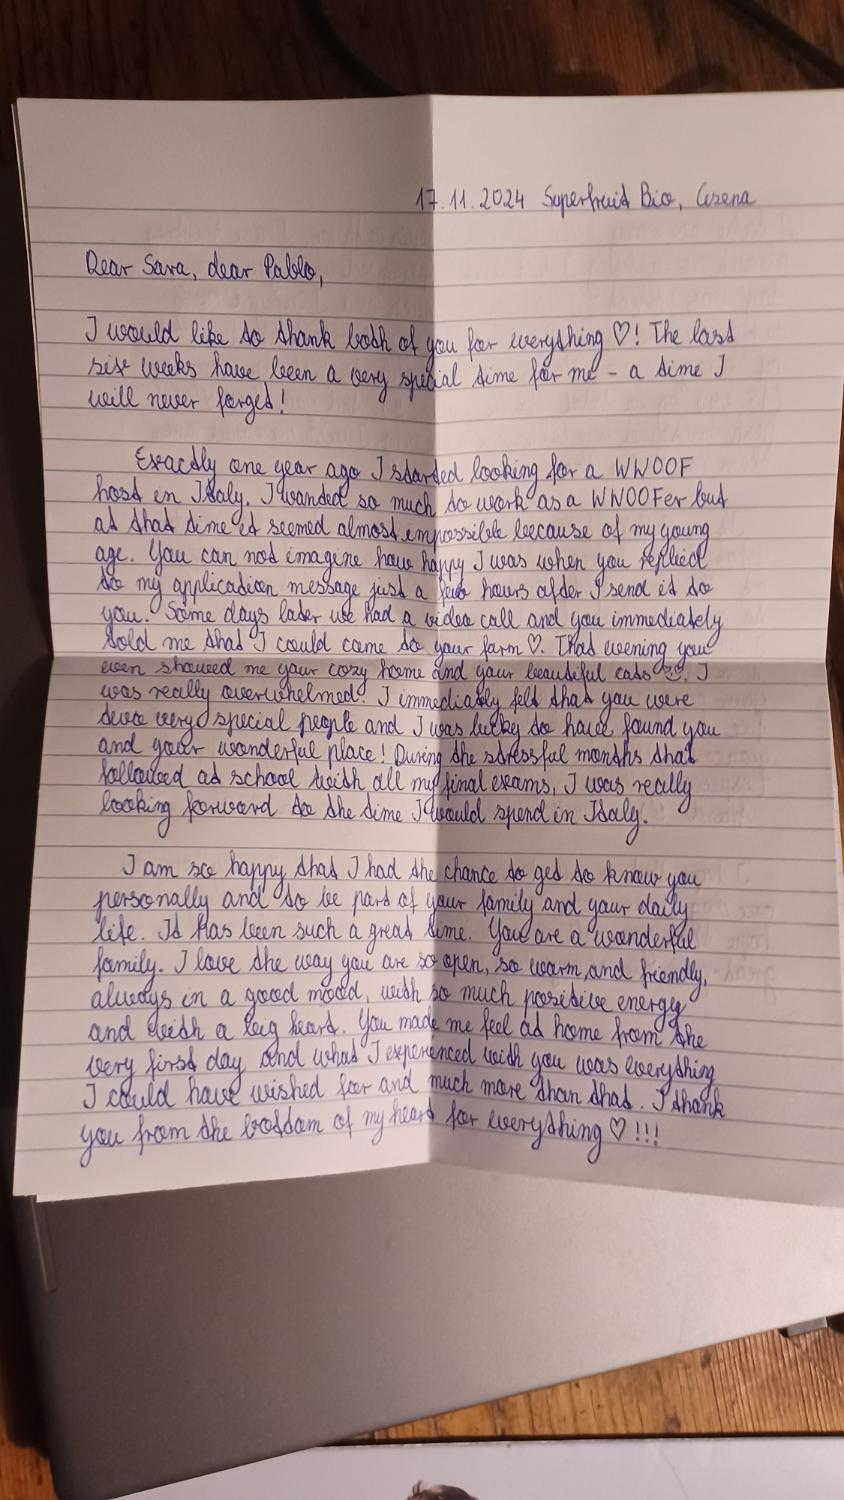 17.11.2024 Superfruit Bio, Cesena
Dear Sara, dear Pablo,
I would like to thank both of you for everything ♡! The last
six weeks have been a very special time for me - a time I
will never forget!
Exactly one year ago I started looking for a WWOOF
host in Italy. I wanted so much to work as a WWOOFer but
at that time it seemed almost impossible because of my young
age. You can not imagine how happy I was when you replied
to my application message just a few hours after I send it to
you. Some days later we had a video call and you immediately
told me that I could come to your farm ♡. That evening you
even showed me your cozy home and your beautiful cats. I
was really overwhelmed! I immediately felt that you were
two very special people and I was lucky to have found you
and your wonderful place! During the stressful months that
followed at school with all my final exams, I was really
looking forward to the time I would spend in Italy.
I am so happy that I had the chance to get to know you
personally and to be part of your family and your daily
life. It has been such a great time. You are a wonderful
family. I love the way you are so open, so warm, and friendly,
always in a good mood, with so much positive energy
and with a big heart. You made me feel at home from the
very first day and what I experienced with you was everything
I could have wished for and much more than that. I thank
you from the bottom of my heart for everything ♡!!!